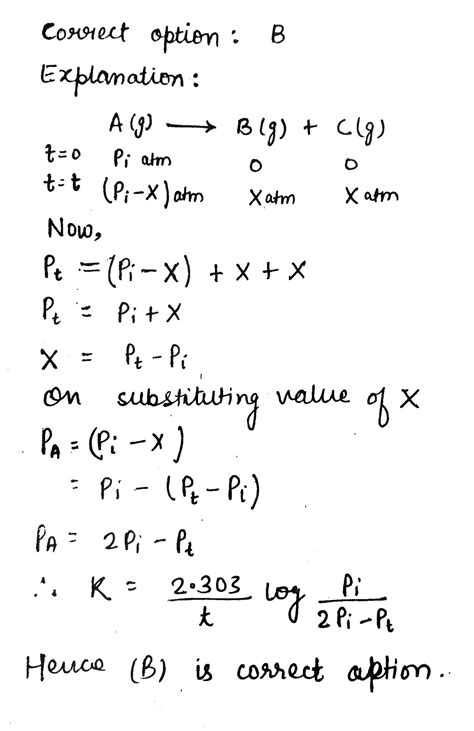 Correct option : B
Explanation :
A (g) ⟶ B (g) + C (g)
t=0 Pi atm 0 0
t=t (Pi-X) atm X atm X atm
Now,
Pt = (Pi - X) + X + X
Pt = Pi + X
X = Pt - Pi
On substituting value of X
PA = (Pi - X)
= Pi - (Pt - Pi)
PA = 2Pi - Pt
∴ K = 2.303/t log Pi/2Pi-Pt
Hence (B) is correct option.